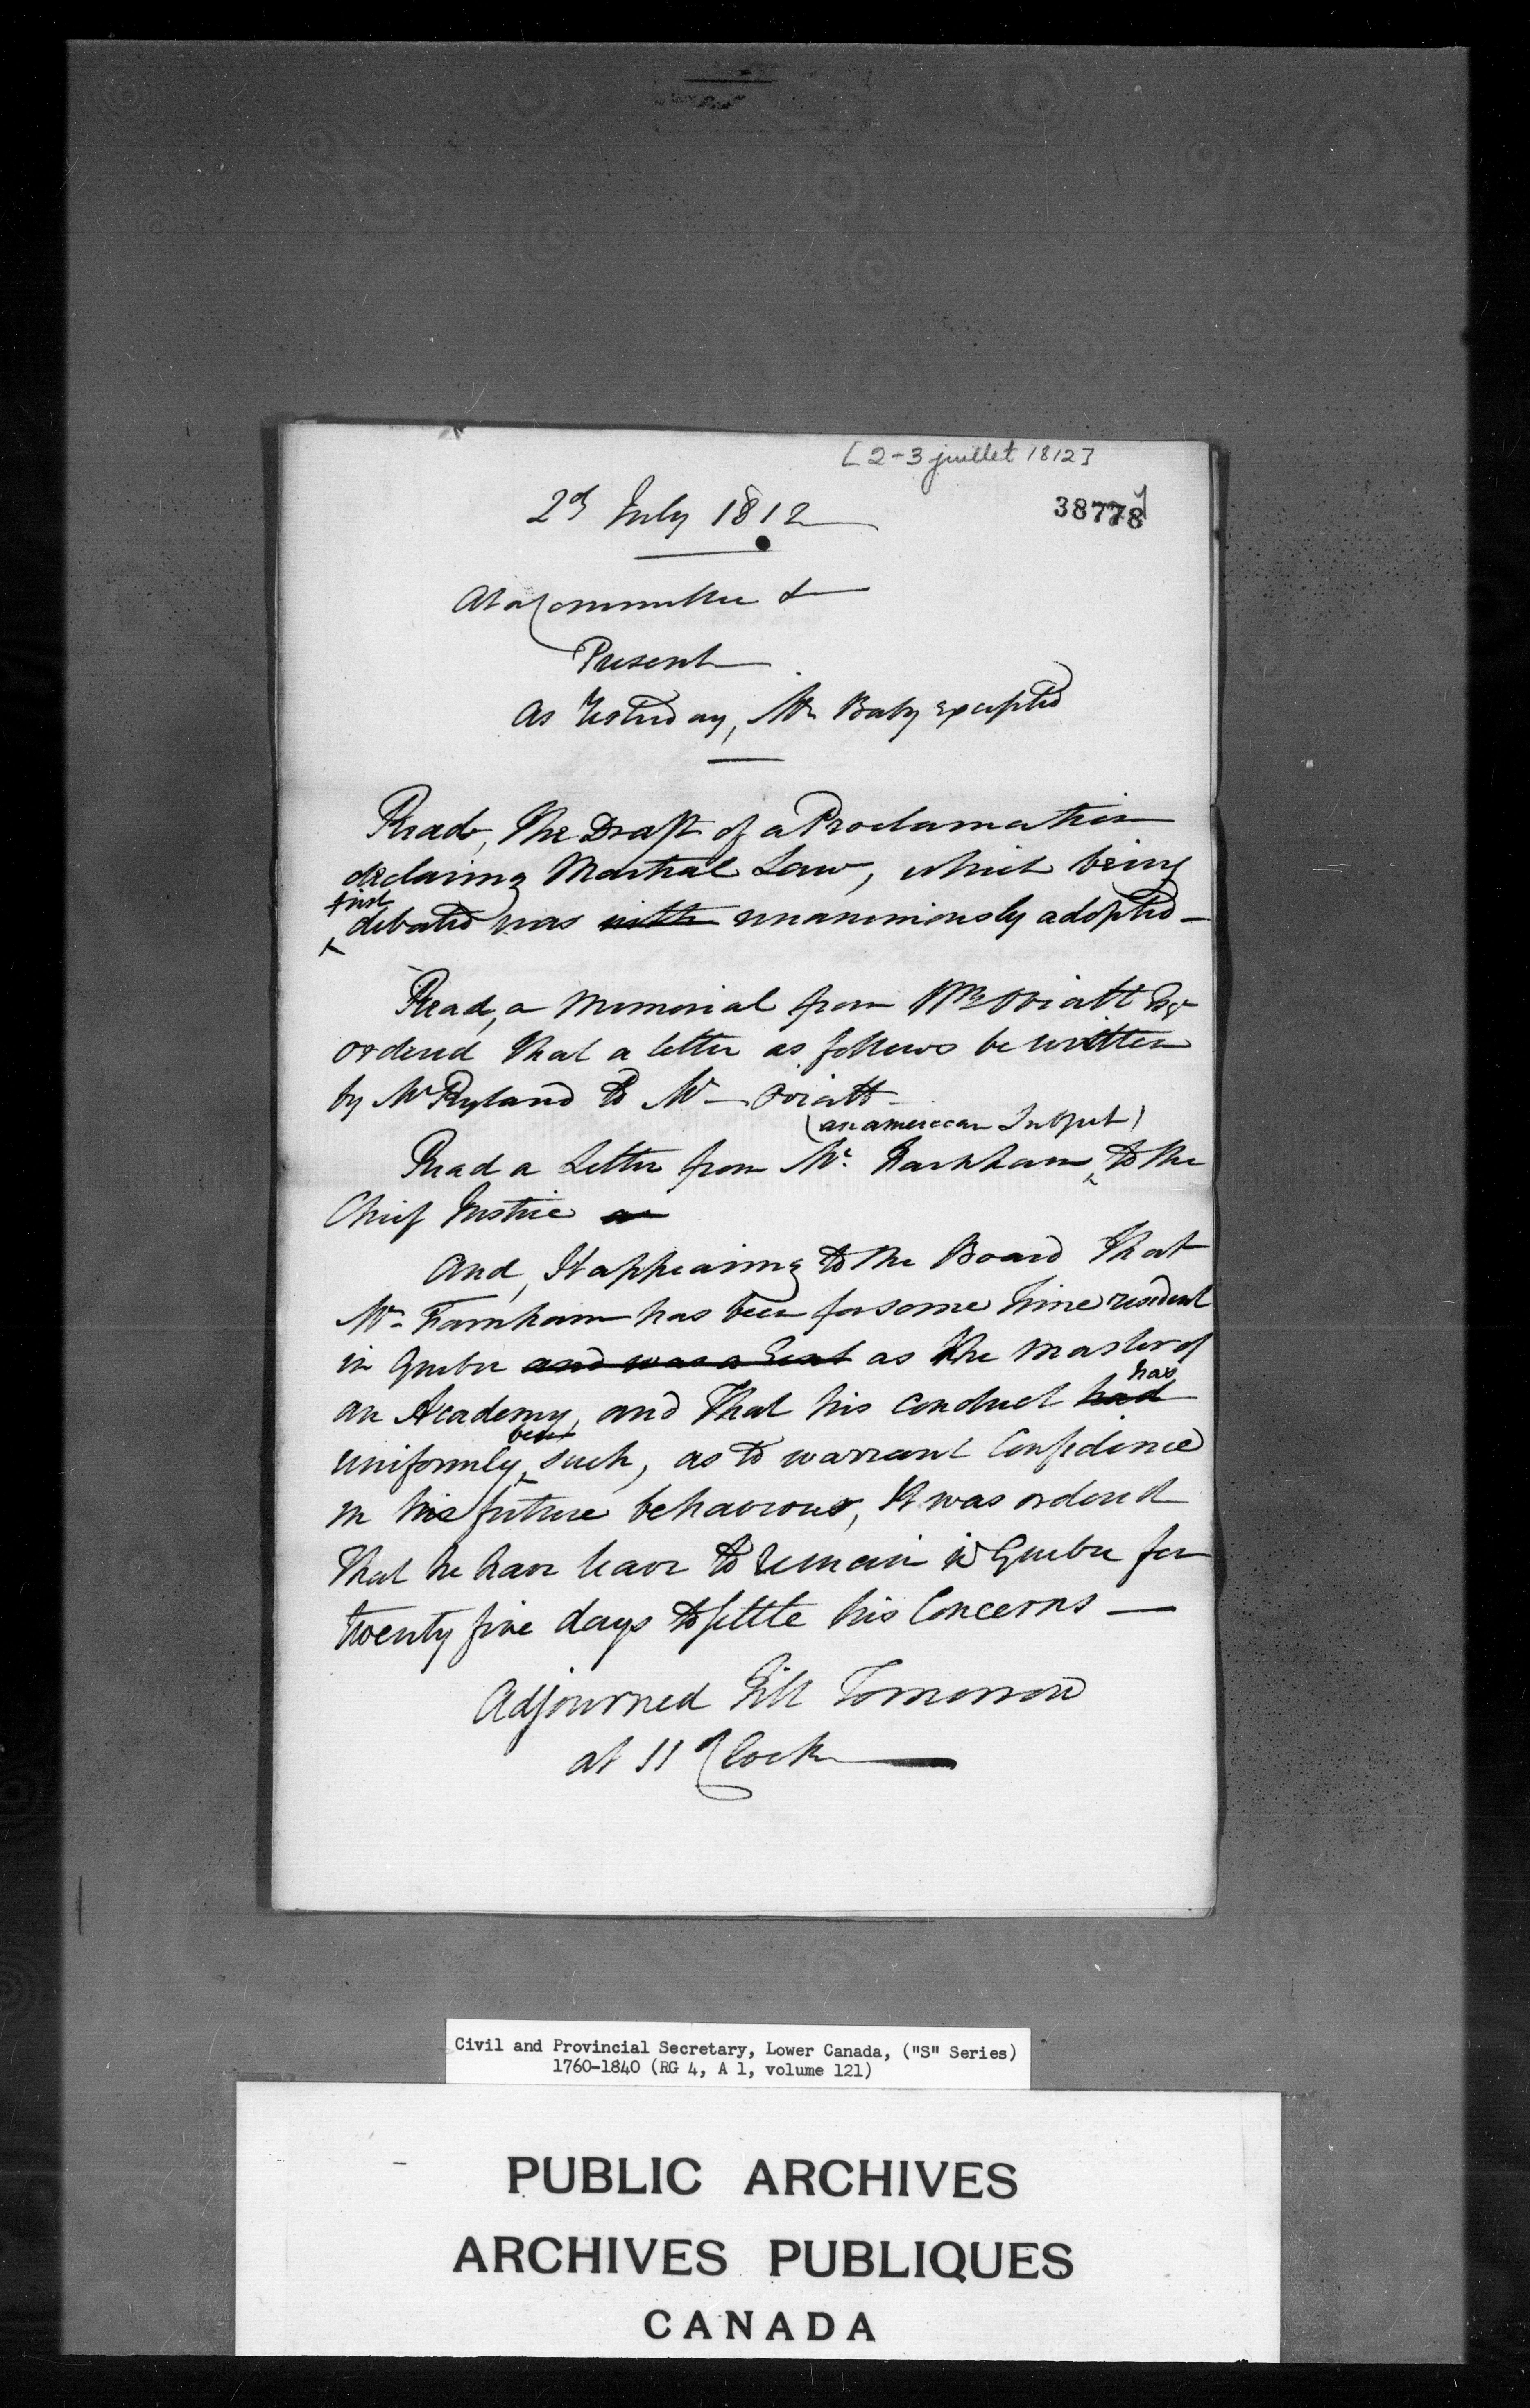 [2-3 juillet 1812]
38778
2d July 1812
At a Committee &
Present
As Yesterday, Mr Baby excepted
Read, the Draft of a Proclamation
declaring Martial Law, which being
first
debated was unanimously adopted -
Read, a Memorial from Wm Oviatt Esqr
ordered that a letter as follows be written
by Mr Ryland to Mr Oviatt -
(an american Subject)
Read a Letter from Mr. to the
Chief Justice
And, It appearing to the Board that
Mr Farnham has been for some time resident
in Quebec and was a as the Master of
has
an Academy, and that his conduct had
been
uniformly such, as to warrant Confidence
in his future behaviour, It was ordered
that he have leave to remain in Quebec for
twenty five days to settle his Concerns —
Adjourned till Tomorrow
at 11 oClock
Civil and Provincial Secretary, Lower Canada, ("S" Series)
1760-1840 (RG 4, A 1, volume 121)
PUBLIC ARCHIVES
ARCHIVES PUBLIQUES
CANADA